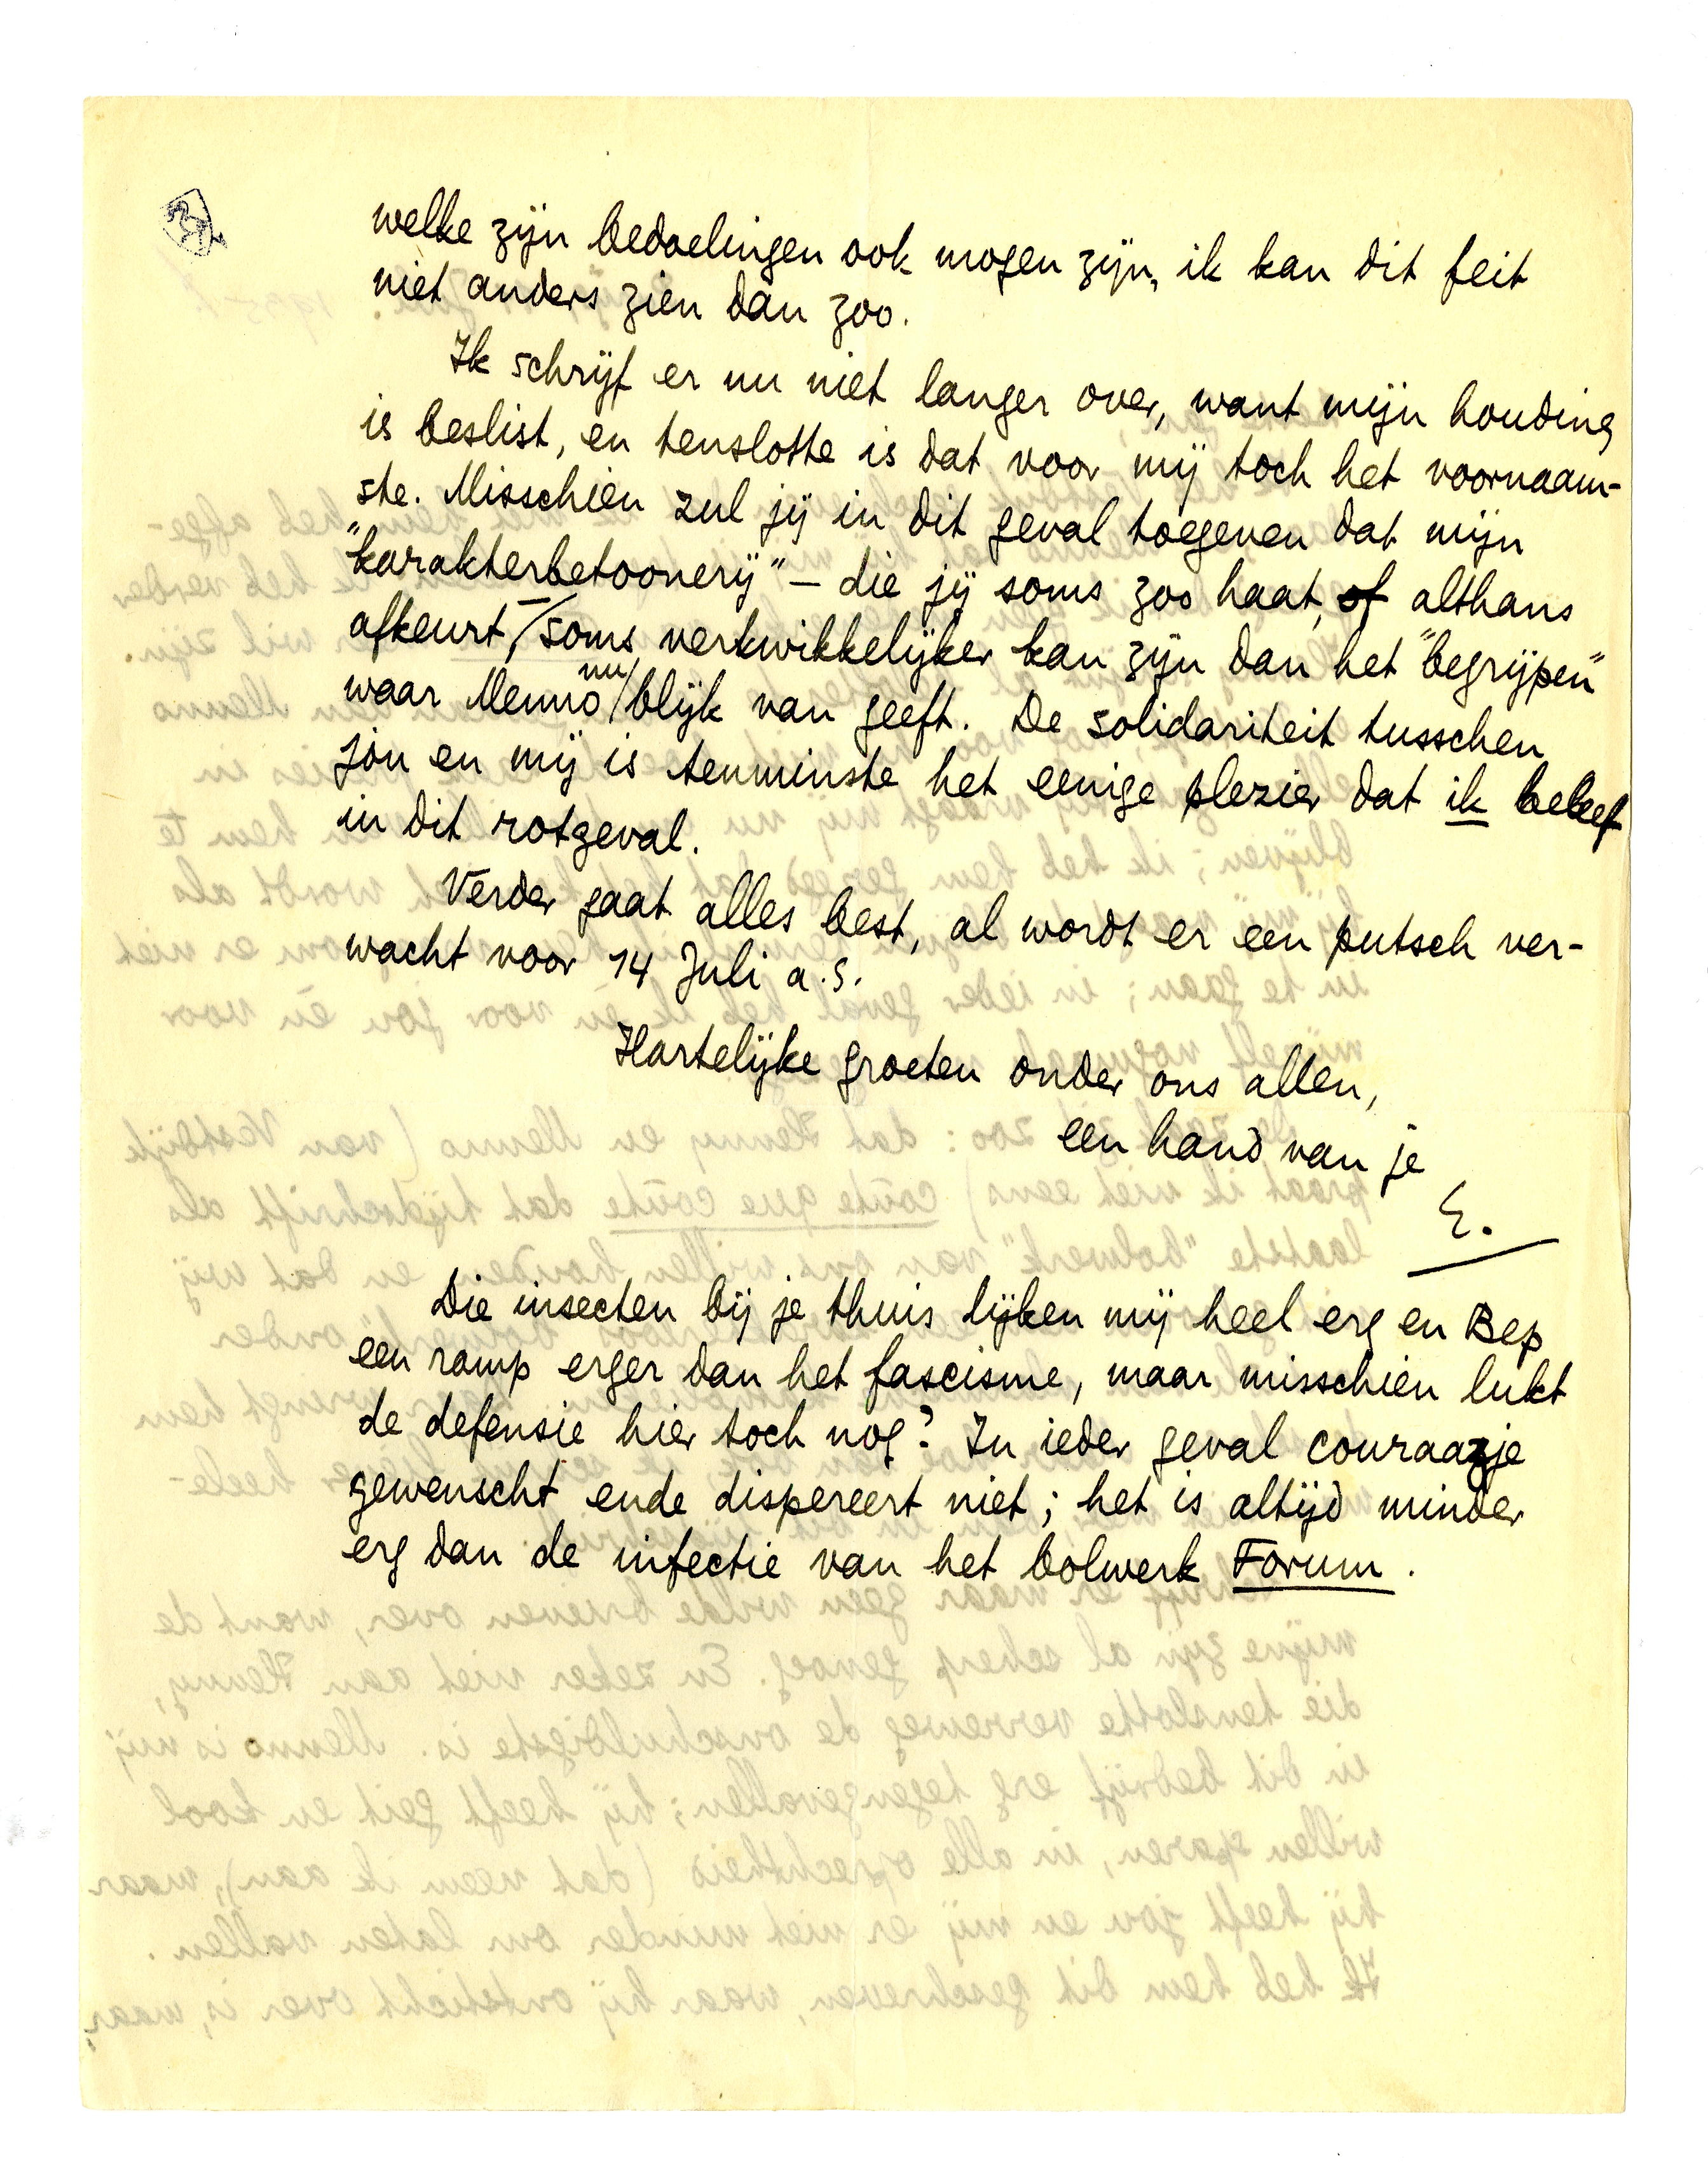 welke zijn bedoelingen ook mogen zijn, ik kan dit feit
niet anders zien dan zoo.
Ik schrijf er nu niet langer over, want mijn houding
is beslist, en tenslotte is dat voor mij toch het voornaam-
ste. Misschien zul jij in dit geval toegeven dat mijn
"karakterbetoonerij" – die jij soms zoo haat, of althans
afkeurt, – soms verkwikkelijker kan zijn dan het "begrijpen"
waar Menno nu blijk van geeft. De solidariteit tusschen
jou en mij is tenminste het eenige plezier dat ik beleef
in dit rotgeval.
Verder gaat alles best, al wordt er een putsch ver-
wacht voor 14 Juli a.s.
Hartelijke groeten onder ons allen,
een hand van je
E.
Die insecten bij je thuis lijken mij heel erg en Bep
een ramp erger dan het fascisme, maar misschien lukt
de defensie hier toch nog? In ieder geval couraazje
gewenscht ende dispereert niet; het is altijd minder
erg dan de infectie van het bolwerk Forum.